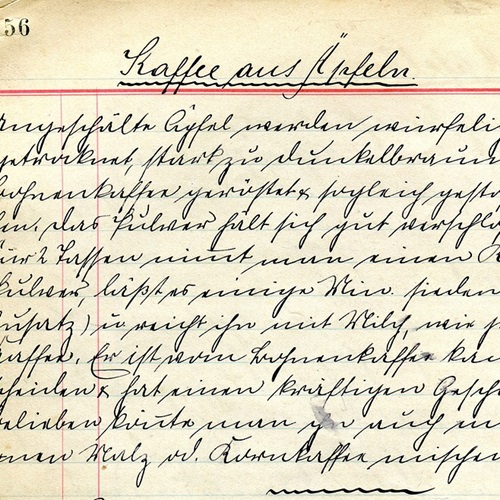 56
Kaffee aus Äpfeln.
Ungeschälte Äpfel werden würfeli
getroknet, stark zu dunkelbraun
bohnenkaffee geröstet & sogleich gesto
ßen. Das Pulver hält sich gut verschlo
Für 2 Tassen nimt man einen K
Pulver, läßt es einige Min. sieden
Zusatz) u reicht ihn mit Milch, wie
Kaffee. Er ist vom Bohnenkaffee kau
cheiden & hat einen kräftigen Gesch
Belieben könte man ihn auch m
nen Malz od. Kornkaffee mischen